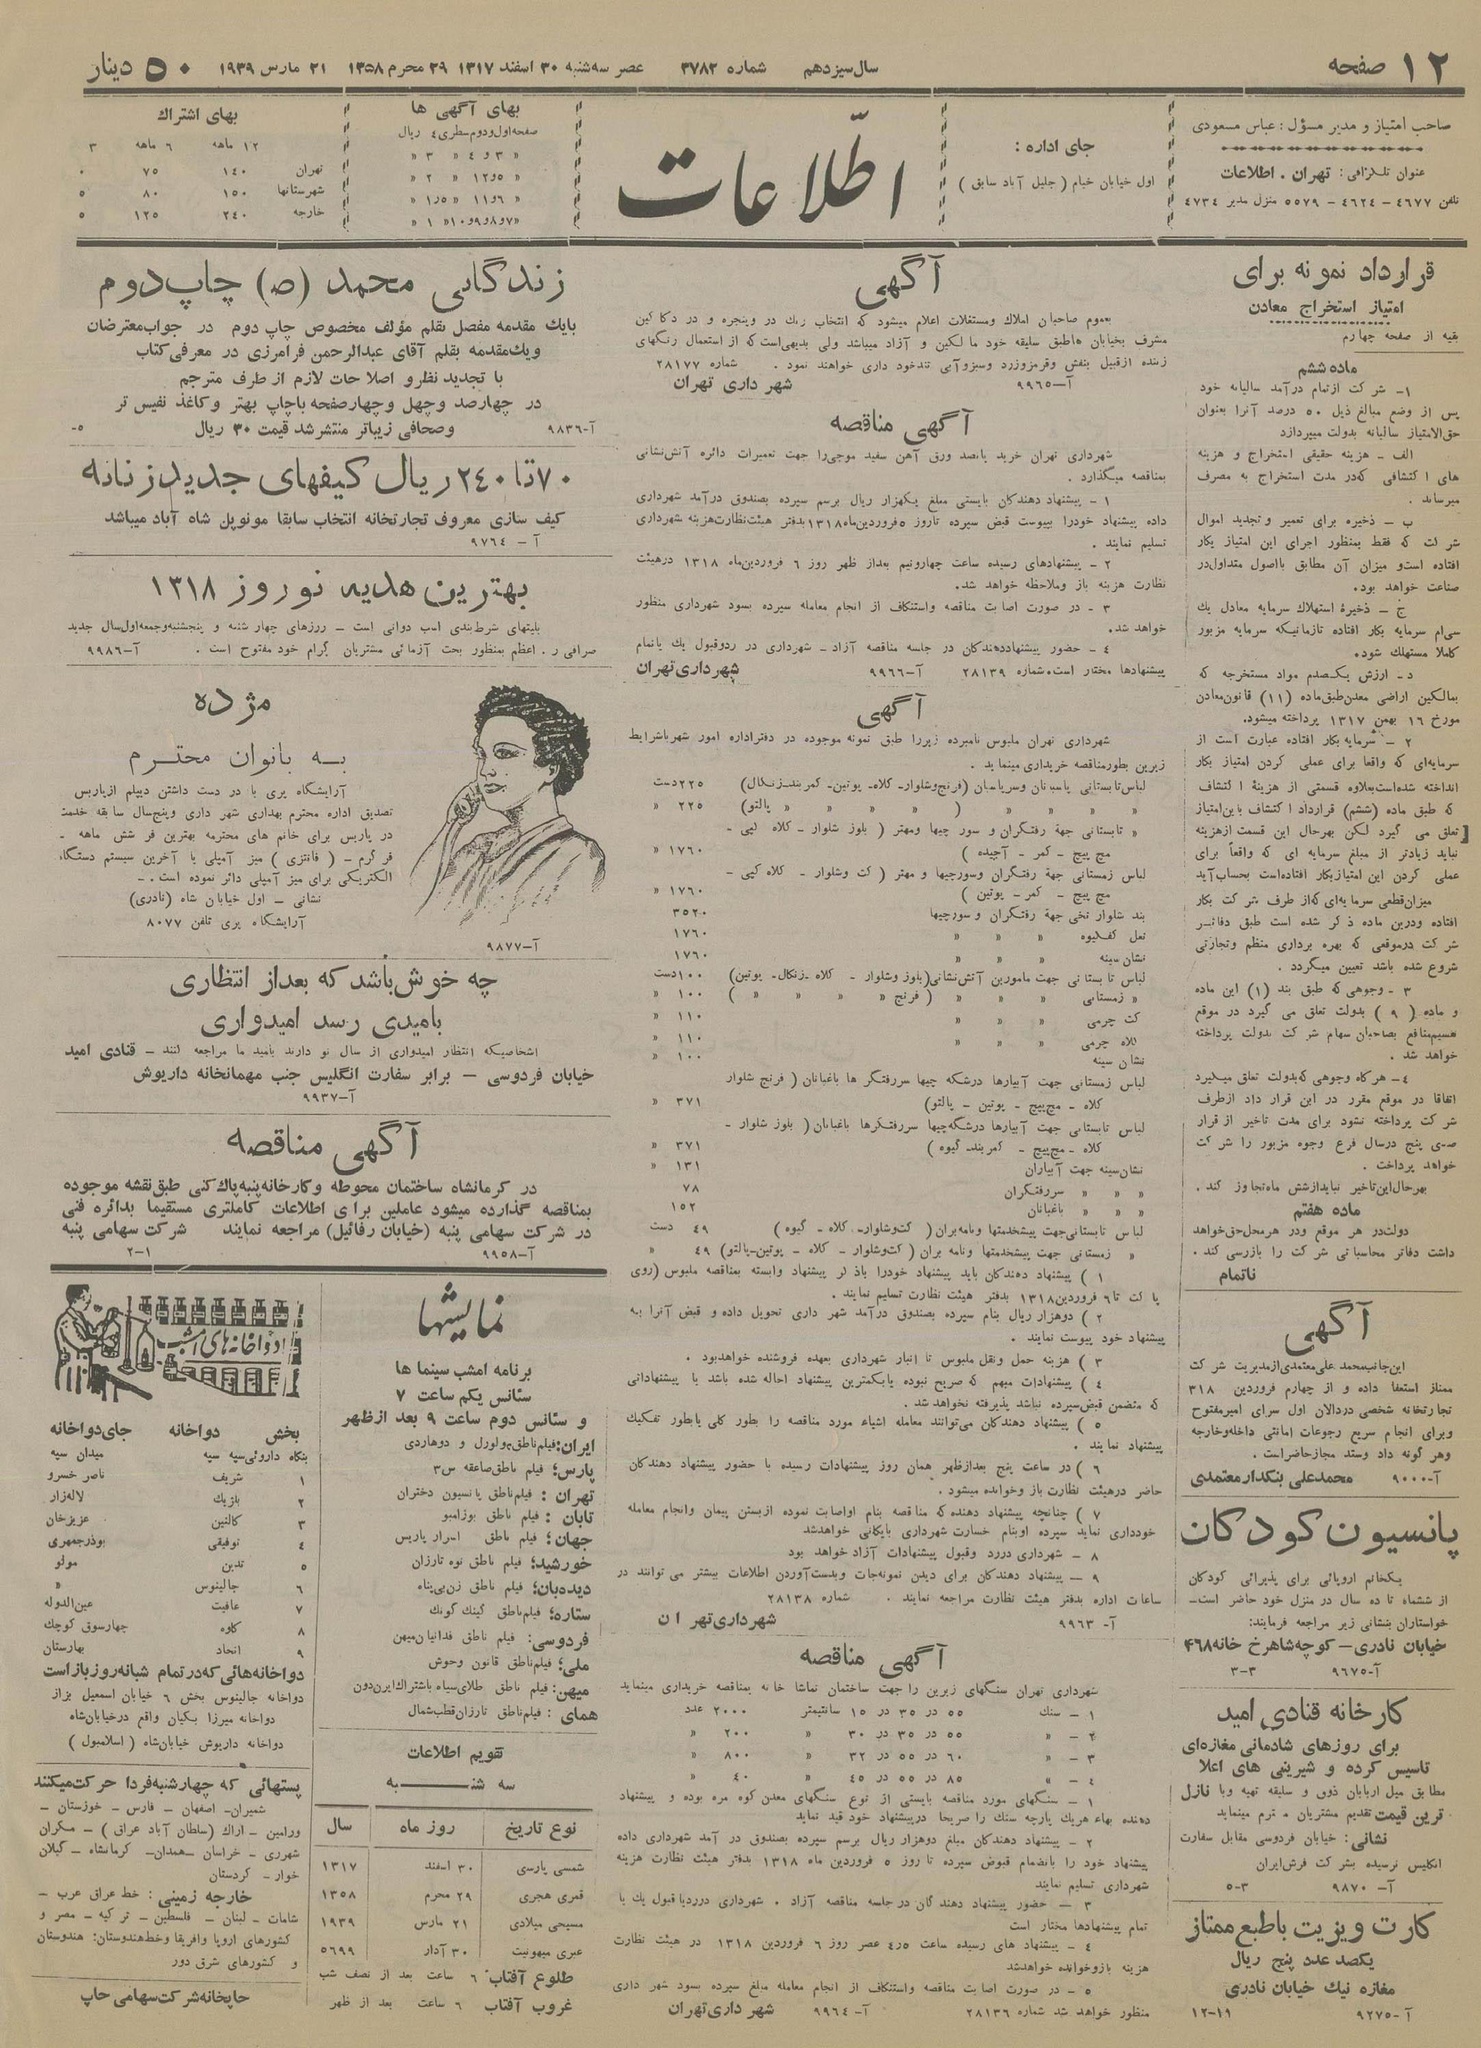 ۱۲ صفحه
سال سیزدهم
شماره ۳۷۸۲
عصر سه‌شنبه ۳۰ اسفند ۱۳۱۷ ۲۹ محرم ۱۳۵۸
۲۱ مارس ۱۹۳۹
۵۰ دینار
صاحب امتیاز و مدیر مسؤل : عباس مسعودی
عنوان تلگرافی : تهران . اطلاعات
تلفن ٤٦٧٧ – ٤٦٢٤ – ٥٥٧٩ منزل مدیر ٤٧٣٤
جای اداره :
اول خیابان خیام ( جلیل آباد سابق )
اطلاعات
بهای آگهی ها
صفحه اول و دوم سطری ٤ ریال
« ۳ و ٤ « ۳ «
« ٥ و ۱۲ « ۲ «
« ٦ و ۱۱ « ۱٫٥ «
« ۷ و ۸ و ۹ و ۱۰ « ۱ «
بهای اشتراك
۱۲ ماهه ٦ ماهه ۳
تهران ۱٤۰ ۷٥ ۰
شهرستانها ۱٥۰ ۸۰ ٥
خارجه ۲٤۰ ۱۲٥ ٥
قرارداد نمونه برای
امتیاز استخراج معادن
بقیه از صفحه چهارم
ماده ششم
۱- شرکت از تمام درآمد سالیانه خود
پس از وضع مبالغ ذیل ٥۰ درصد آنرا بعنوان
حق‌الامتیاز سالیانه بدولت میپردازد
الف – هزینه حقیقی استخراج و هزینه
های اکتشافی که در مدت استخراج به مصرف
میرساند .
ب – ذخیره برای تعمیر و تجدید اموال
شرکت که فقط بمنظور اجرای این امتیاز بکار
افتاده است و میزان آن مطابق با اصول متداول در
صناعت خواهد بود.
ج – ذخیرهٔ استهلاك سرمایه معادل یك
سی‌ام سرمایه بکار افتاده تا زمانیکه سرمایه مزبور
کاملا مستهلك شود.
د- ارزش یک‌صدم مواد مستخرجه که
بمالکین اراضی معدن طبق ماده (۱۱) قانون معادن
مورخ ۱٦ بهمن ۱۳۱۷ پرداخته میشود.
۲ – سرمایه بکار افتاده عبارت است از
سرمایه‌ای که واقعا برای عملی کردن امتیاز بکار
انداخته شده است بعلاوه قسمتی از هزینهٔ اکتشاف
که طبق ماده (ششم) قرارداد اکتشاف باین امتیاز
تعلق می گیرد لکن بهرحال این قسمت از هزینه
نباید زیادتر از مبلغ سرمایه ای که واقعاً برای
عملی کردن این امتیاز بکار افتاده است بحساب آید
میزان قطعی سرمایه‌ای که از طرف شرکت بکار
افتاده و در این ماده ذکر شده است طبق دفاتر
شرکت در موقعی که بهره برداری منظم و تجارتی
شروع شده باشد تعیین میگردد .
۳ – وجوهی که طبق بند (۱) این ماده
و ماده ( ۹ ) بدولت تعلق می گیرد در موقع
تقسیم منافع بصاحبان سهام شرکت بدولت پرداخته
خواهد شد .
٤- هرگاه وجوهی که بدولت تعلق میگیرد
اتفاقا در موقع مقرر در این قرار داد از طرف
شرکت پرداخته نشود برای مدت تاخیر از قرار
صدی پنج در سال فرع وجوه مزبور را شرکت
خواهد پرداخت .
بهرحال این تاخیر نباید از شش ماه تجاوز کند .
ماده هفتم
دولت در هر موقع و در هر محل حق خواهد
داشت دفاتر محاسباتی شرکت را بازرسی کند .
ناتمام
آگهی
این جانب محمد علی معتمدی از مدیریت شرکت
ممتاز استعفا داده و از چهارم فروردین ۳۱۸
تجارتخانه شخصی در دالان اول سرای امیر مفتوح
و برای انجام سریع رجوعات امانتی داخله و خارجه
و هر گونه داد و ستد مجاز حاضر است .
آ-۹۰۰۰ محمدعلی بنکدار معتمدی
پانسیون کودکان
یکخانم اروپائی برای پذیرائی کودکان
از ششماه تا ده سال در منزل خود حاضر است-
خواستاران بنشانی زیر مراجعه فرمایند:
خیابان نادری – کوچه شاهرخ خانه ۴۶۸
آ-۹٦۷٥ ۳-۳
کارخانه قنادی امید
برای روزهای شادمانی مغازه‌ای
تاسیس کرده و شیرینی های اعلا
مطابق میل اربابان ذوق و سلیقه تهیه و با نازل
ترین قیمت تقدیم مشتریان محترم مینماید
نشانی : خیابان فردوسی مقابل سفارت
انگلیس نرسیده بشرکت فرش ایران
آ- ۹۸۷۰ ۳-٥
کارت ویزیت با طبع ممتاز
یکصد عدد پنج ریال
مغازه نیك خیابان نادری
آ-۹۲۷٥ ۱۱-۱۲
آگهی
بعموم صاحبان املاك و مستغلات اعلام میشود که انتخاب رنك در و پنجره و در دکاکین
مشرف بخیابان ها طبق سلیقه خود مالکین و آزاد میباشد ولی بدیهی است که از استعمال رنگهای
زننده از قبیل بنفش و قرمز و زرد و سبز و آبی تند خود داری خواهند نمود . شماره ۲۸۱۷۷
آ-۹۹٦٥ شهر داری تهران
آگهی مناقصه
شهرداری تهران خرید پانصد ورق آهن سفید موجی را جهت تعمیرات دائره آتش نشانی
بمناقصه میگذارد .
۱ – پیشنهاد دهندکان بایستی مبلغ یکهزار ریال برسم سپرده بصندوق درآمد شهرداری
داده پیشنهاد خود را بپیوست قبض سپرده تا روز ٥ فروردین ماه ۱۳۱۸ بدفتر هیئت نظارت هزینه شهرداری
تسلیم نمایند .
۲ – پیشنهادهای رسیده ساعت چهار و نیم بعد از ظهر روز ٦ فروردین ماه ۱۳۱۸ در هیئت
نظارت هزینه باز و ملاحظه خواهد شد.
۳ – در صورت اصابت مناقصه و استنکاف از انجام معامله سپرده بسود شهرداری منظور
خواهد شد.
٤ – حضور پیشنهاد دهندکان در جلسه مناقصه آزاد – شهرداری در رد و قبول یك یا تمام
پیشنهادها مختار است . شماره ۲۸۱۳۹ آ-۹۹٦٦ شهرداری تهران
آگهی
شهرداری تهران ملبوس نامبرده زیر را طبق نمونه موجوده در دفتر اداره امور شهر با شرایط
زیرین بطور مناقصه خریداری مینماید .
لباس تابستانی پاسبانان و سرپاسبان (فرنج و شلوار- کلاه- پوتین- کمربند- زنگال) ۲۲٥ دست
« « « « ( « « « « پالتو) ۲۲٥ «
« تابستانی جهة رفتگران و سورچیها و مهتر ( بلوز شلوار - کلاه کپی -
مچ پیچ - کمر - آجیده ) ۱۷٦۰ «
لباس زمستانی جهة رفتگران و سورچیها و مهتر ( کت و شلوار - کلاه کپی -
مچ پیچ - کمر- پوتین ) ۱۷٦۰ «
بند شلوار نخی جهة رفتگران و سورچیها ۳٥۲۰
نعل کف گیوه « « « ۱۷٦۰
نشان سینه « « « ۱۷٦۰
لباس تابستانی جهت مامورین آتش نشانی (بلوز و شلوار - کلاه - زنگال- پوتین) ۱۰۰ دست
« زمستانی « « « ( فرنج « « « « ) ۱۰۰ «
کت چرمی « « « ۱۱۰ «
کلاه چرمی « « « ۱۱۰ «
نشان سینه ۱۰۰ «
لباس زمستانی جهت آبیارها درشکه چیها سررفتگر ها باغبانان ( فرنج شلوار
کلاه - مچ پیچ - پوتین - پالتو) ۳۷۱ «
لباس تابستانی جهت آبیارها درشگه چیها سررفتگرها باغبانان ( بلوز شلوار -
کلاه - مچ پیچ - کمربند- گیوه ) ۳۷۱ «
نشان سینه جهت آبیاران ۱۳۱ «
« « « سررفتگران ۷۸
« « « باغبانان ۱٥۲
لباس تابستانی جهت پیشخدمتها و نامه بران ( کت و شلوار- کلاه - گیوه ) ٤۹ دست
« زمستانی جهت پیشخدمتها و نامه بران ( کت و شلوار - کلاه - پوتین- پالتو) ٤۹ «
۱ ) پیشنهاد دهندکان باید پیشنهاد خود را با ذکر پیشنهاد وابسته بمناقصه ملبوس (روی
پاکت تا ٦ فروردین ۱۳۱۸ بدفتر هیئت نظارت تسلیم نمایند .
۲ ) دوهزار ریال بنام سپرده بصندوق درآمد شهر داری تحویل داده و قبض آنرا به
پیشنهاد خود پیوست نمایند .
۳ ) هزینه حمل و نقل ملبوس تا انبار شهرداری بعهده فروشنده خواهد بود .
٤ ) پیشنهادات مبهم که صریح نبوده یا بکمترین پیشنهاد احاله شده باشد یا پیشنهاداتی
که متضمن قبض سپرده نباشد پذیرفته نخواهد شد .
٥ ) پیشنهاد دهندکان می‌توانند معامله اشیاء مورد مناقصه را بطور کلی یا بطور تفکیك
پیشنهاد نمایند .
٦ ) در ساعت پنج بعد از ظهر همان روز پیشنهادات رسیده با حضور پیشنهاد دهندکان
حاضر در هیئت نظارت باز و خوانده میشود .
۷ ) چنانچه پیشنهاد دهنده که مناقصه بنام او اصابت نموده از بستن پیمان و انجام معامله
خودداری نماید سپرده او بنام خسارت شهرداری بایگانی خواهد شد
۸ – شهرداری در رد و قبول پیشنهادات آزاد خواهد بود
۹ – پیشنهاد دهندکان برای دیدن نمونه جات و بدست آوردن اطلاعات بیشتر می توانند در
ساعات اداره بدفتر هیئت نظارت مراجعه نمایند . شماره ۲۸۱۳۸
آ- ۹۹٦۳ شهرداری تهران
آگهی مناقصه
شهرداری تهران سنگهای زیرین را جهت ساختمان تماشا خانه بمناقصه خریداری مینماید
۱ – سنك ٥٥ در ۳٥ در ۱٥ سانتیمتر ۲۰۰۰ عدد
۲ – « ٥٥ در ۳٥ در ۳۰ « ۲۰۰ «
۳ – « ٦۰ در ٥٥ در ۳۲ « ۸۰۰ «
٤ – « ۸٥ در ٥٥ در ٤٥ « ٤۰ «
۱ – سنگهای مورد مناقصه بایستی از نوع سنگهای معدن کوه مره بوده و پیشنهاد
دهنده بهاء هر یك پارچه سنك را صریحا در پیشنهاد خود قید نماید
۲ – پیشنهاد دهندکان مبلغ دوهزار ریال برسم سپرده بصندوق در آمد شهرداری داده
پیشنهاد خود را بانضمام قبوض سپرده تا روز ٥ فروردین ماه ۱۳۱۸ بدفتر هیئت نظارت هزینه
شهرداری تسلیم نمایند
۳ – حضور پیشنهاد دهندگان در جلسه مناقصه آزاد . شهرداری در رد یا قبول یك یا
تمام پیشنهادها مختار است
٤ – پیشنهاد های رسیده ساعت ٤٫٥ عصر روز ٦ فروردین ۱۳۱۸ در هیئت نظارت
هزینه باز و خوانده خواهد شد
٥ – در صورت اصابت مناقصه و استنکاف از انجام معامله مبلغ سپرده بسود شهر داری
منظور خواهد شد شماره ۲۸۱۳٦ آ- ۹۹٦٤ شهر داری تهران
زندگانی محمد (ص) چاپ دوم
با یك مقدمه مفصل بقلم مؤلف مخصوص چاپ دوم در جواب معترضان
و یك مقدمه بقلم آقای عبدالرحمن فرامرزی در معرفی کتاب
با تجدید نظر و اصلاحات لازم از طرف مترجم
در چهارصد و چهل و چهار صفحه با چاپ بهتر و کاغذ نفیس تر
آ-۹۸۳٦ و صحافی زیباتر منتشر شد قیمت ۳۰ ریال ٥-
۷۰ تا ۲٤۰ ریال کیفهای جدید زنانه
کیف سازی معروف تجارتخانه انتخاب سابقا مونوپل شاه آباد میباشد
آ - ۹۷٦٤
بهترین هدیه نوروز ۱۳۱۸
بلیتهای شرط بندی اسب دوانی است – روزهای چهار شنبه و پنجشنبه و جمعه اول سال جدید
صرافی ر . اعظم بمنظور بخت آزمائی مشتریان گرام خود مفتوح است . آ-۹۹۸٦
مژده
به بانوان محترم
آرایشگاه پری با در دست داشتن دیپلم از پاریس
تصدیق اداره محترم بهداری شهر داری و پنج سال سابقه خدمت
در پاریس برای خانم های محترمه بهترین فر شش ماهه –
فر گرم – ( فانتزی ) میز آمپلی با آخرین سیستم دستگاه
الکتریکی برای میز آمپلی دائر نموده است .–
نشانی – اول خیابان شاه (نادری)
آرایشگاه پری تلفن ۸۰۷۷
آ-۹۸۷۷
چه خوش باشد که بعد از انتظاری
بامیدی رسد امیدواری
اشخاصیکه انتظار امیدواری از سال نو دارند بامید ما مراجعه کنند – قنادی امید
خیابان فردوسی – برابر سفارت انگلیس جنب مهمانخانه داریوش
آ-۹۹۳۷
آگهی مناقصه
در کرمانشاه ساختمان محوطه و کارخانه پنبه پاك کنی طبق نقشه موجوده
بمناقصه گذارده میشود عاملین برای اطلاعات کاملتری مستقیما بدائره فنی
در شرکت سهامی پنبه (خیابان رفائیل) مراجعه نمایند شرکت سهامی پنبه
آ-۹۹٥۸ ۱-۲
نمایشها
برنامه امشب سینما ها
سئانس یکم ساعت ۷
و سئانس دوم ساعت ۹ بعد از ظهر
ایران: فیلم ناطق لورل و دوهاردی
پارس؛ فیلم ناطق صاعقه س۳
تهران : فیلم ناطق پانسیون دختران
تابان : فیلم ناطق بوزامبو
جهان؛ فیلم ناطق اسرار پاریس
خورشید؛ فیلم ناطق نوه تارزان
دیده‌بان؛ فیلم ناطق زن بی‌پناه
ستاره؛ فیلم ناطق کینك کونك
فردوسی: فیلم ناطق فدائیان میهن
ملی؛ فیلم ناطق قانون وحوش
میهن: فیلم ناطق طلای سیاه باشتراك ایرن دون
همای : فیلم ناطق تارزان قطب شمال
تقویم اطلاعات
سه شنبه
نوع تاریخ روز ماه سال
شمسی پارسی ۳۰ اسفند ۱۳۱۷
قمری هجری ۲۹ محرم ۱۳٥۸
مسیحی میلادی ۲۱ مارس ۱۹۳۹
عبری صهیونیت ۳۰ آدار ٥٦۹۹
طلوع آفتاب ٦ ساعت بعد از نصف شب
غروب آفتاب ٦ ساعت بعد از ظهر
دواخانه‌های امشب
بخش دواخانه جای دواخانه
بنگاه داروئی سپه سپه میدان سپه
۱ شریف ناصر خسرو
۲ بلژیك لاله‌زار
۳ کالنین عزیزخان
٤ توفیقی بوذرجمهری
٥ تدین مولو
٦ جالینوس «
۷ عافیت عین‌الدوله
۸ کاوه چهارسوق کوچك
۹ اتحاد بهارستان
دواخانه‌هائی که در تمام شبانه روز باز است
دواخانه جالینوس بخش ٦ خیابان اسمعیل بزاز
دواخانه میرزا یکیان واقع در خیابان شاه
دواخانه داریوش خیابان شاه ( اسلامبول )
پستهائی که چهارشنبه فردا حرکت میکنند
شمیران- اصفهان - فارس - خوزستان -
ورامین - اراك (سلطان آباد عراق) - مکران
شهرری - خراسان - همدان- کرمانشاه - گیلان
خوار - کردستان
خارجه زمینی : خط عراق عرب -
شامات - لبنان - فلسطین - ترکیه - مصر و
کشورهای اروپا و افریقا و خط هندوستان: هندوستان
و کشورهای شرق دور
چاپخانه شرکت سهامی چاپ